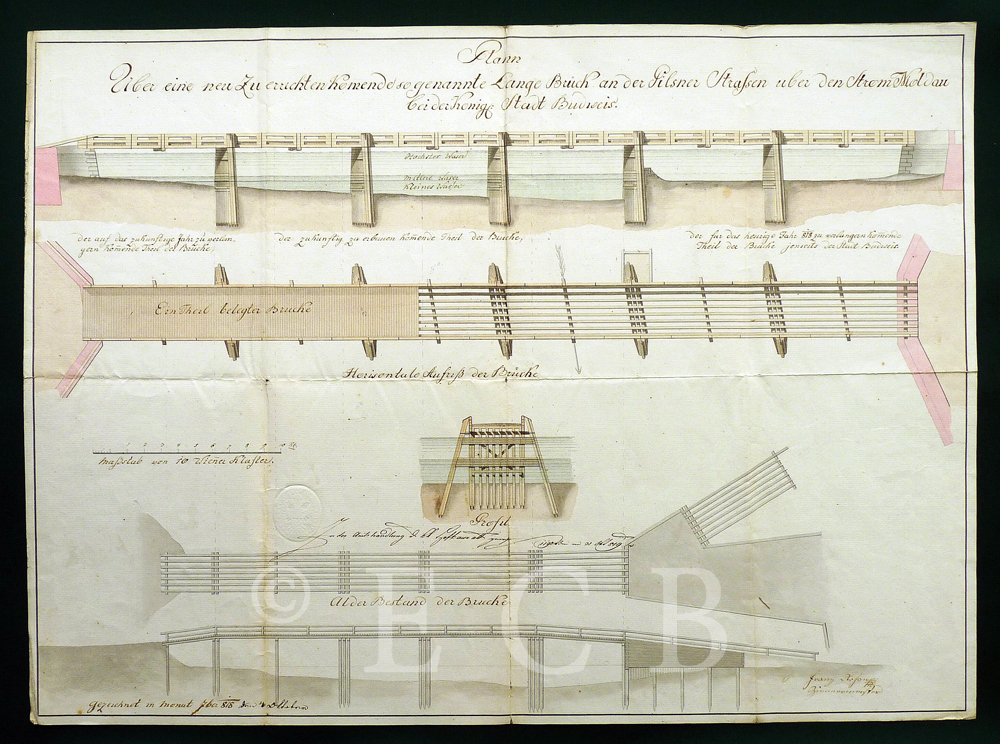 Plann
Uiber eine neu Zu errichten komende so genannte Lange Bruck an der Pilsner Strassen uber den Strom Moldau
bei der König: Stadt Budweis.
Hochster Wasser
mittere Waser
Kleines Waser
der auf das zukunftige Jahr zu verlan,
gern komende Theil der Brücke,
der zukunftig zu erbauen komende Theil der Brücke,
der fur das heurige Jahr 818 zu verlangern komende
Theil der Brücke jenseits der Stadt Budweis.
Ein Theil belegter Brucke
Horisontale Aufriß der Brücke
Maßstab von 10 Wiener Klafter.
Profil
Alder Bestand der Brucke
© ECB
gezeichnet im Monat 818
Franz
Zimmermeister